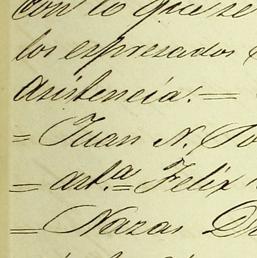 con lo que se
los expresados
asistencia. =
= Juan N.
= art.ª = Felix
= Nazar